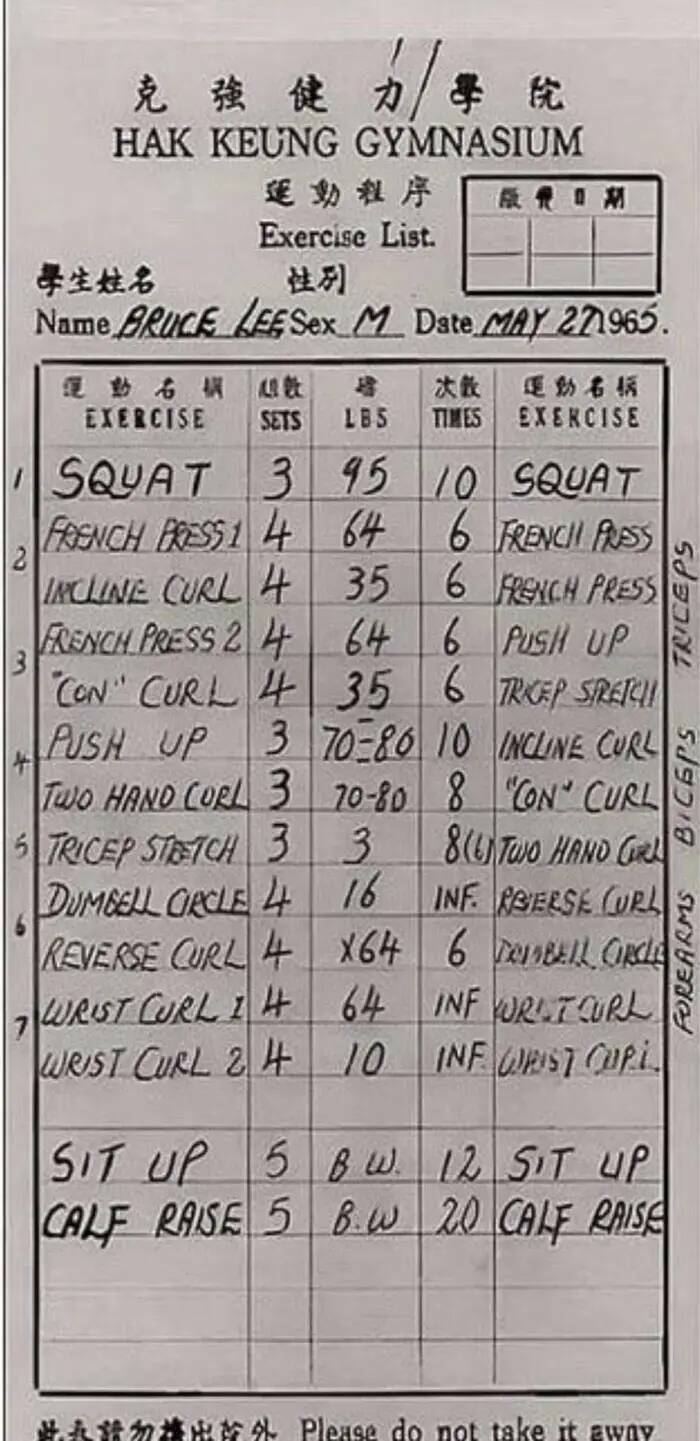 克強健力學院
HAK KEUNG GYMNASIUM
運動程序
繳費日期
Exercise List.
學生姓名 性別
Name BRUCE LEE Sex M Date MAY 27 1965.
運動名稱 組數 磅 次數 運動名稱
EXERCISE SETS LBS TIMES EXERCISE
1 SQUAT 3 95 10 SQUAT
FRENCH PRESS 1 4 64 6 FRENCH PRESS
2
INCLINE CURL 4 35 6 FRENCH PRESS
FRENCH PRESS 2 4 64 6 PUSH UP
3
"CON" CURL 4 35 6 TRICEP STRETCH
PUSH UP 3 70-80 10 INCLINE CURL
4
TWO HAND CURL 3 70-80 8 "CON" CURL
5 TRICEP STRETCH 3 3 8(6) TWO HAND CURL
DUMBELL CIRCLE 4 16 INF. REVERSE CURL
6
REVERSE CURL 4 X64 6 DUMBELL CIRCLE
WRIST CURL 1 4 64 INF WRIST CURL
7
WRIST CURL 2 4 10 INF. WRIST CURL
SIT UP 5 B.W. 12 SIT UP
CALF RAISE 5 B.W 20 CALF RAISE
TRICEPS
BICEPS
FOREARMS
請勿攜出院外 Please do not take it away